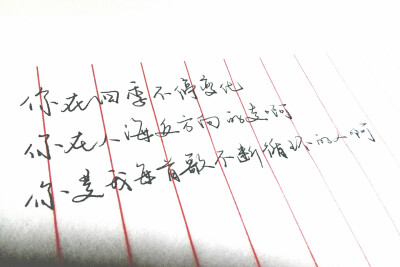 你在四季不停变化
你在人海无方向的走啊
你是我每首歌不断循环的人啊